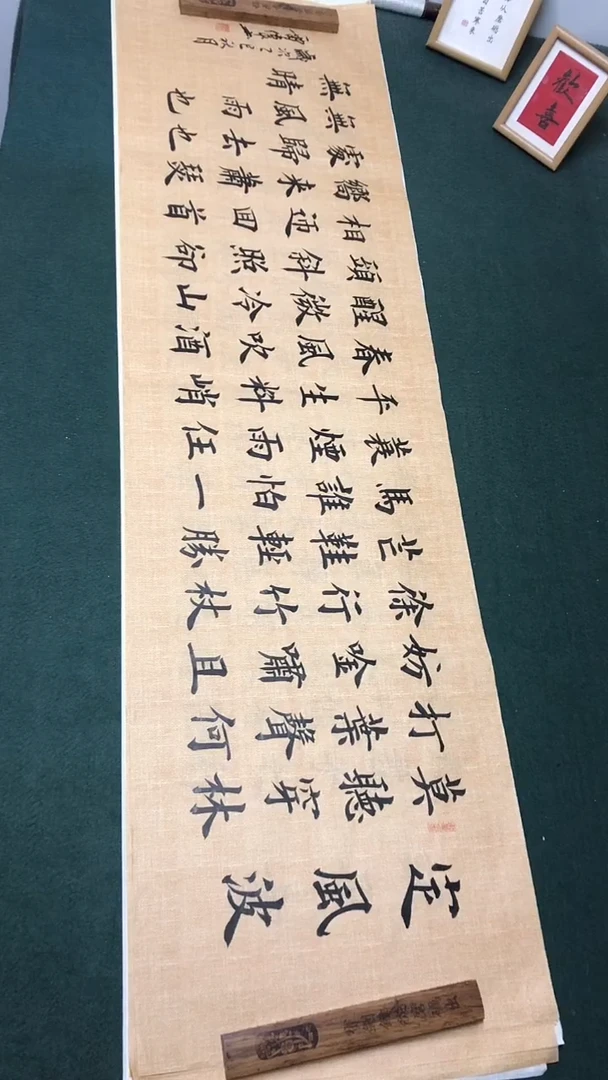 定風波
莫聽穿林
打葉聲何
妨吟嘯且
徐行竹杖
芒鞋輕勝
馬誰怕一
蓑煙雨任
平生料峭
春風吹酒
醒微冷山
頭斜照卻
相迎回首
嚮來蕭瑟
處歸去也
無風雨也
無晴
乙巳秋月
歡喜